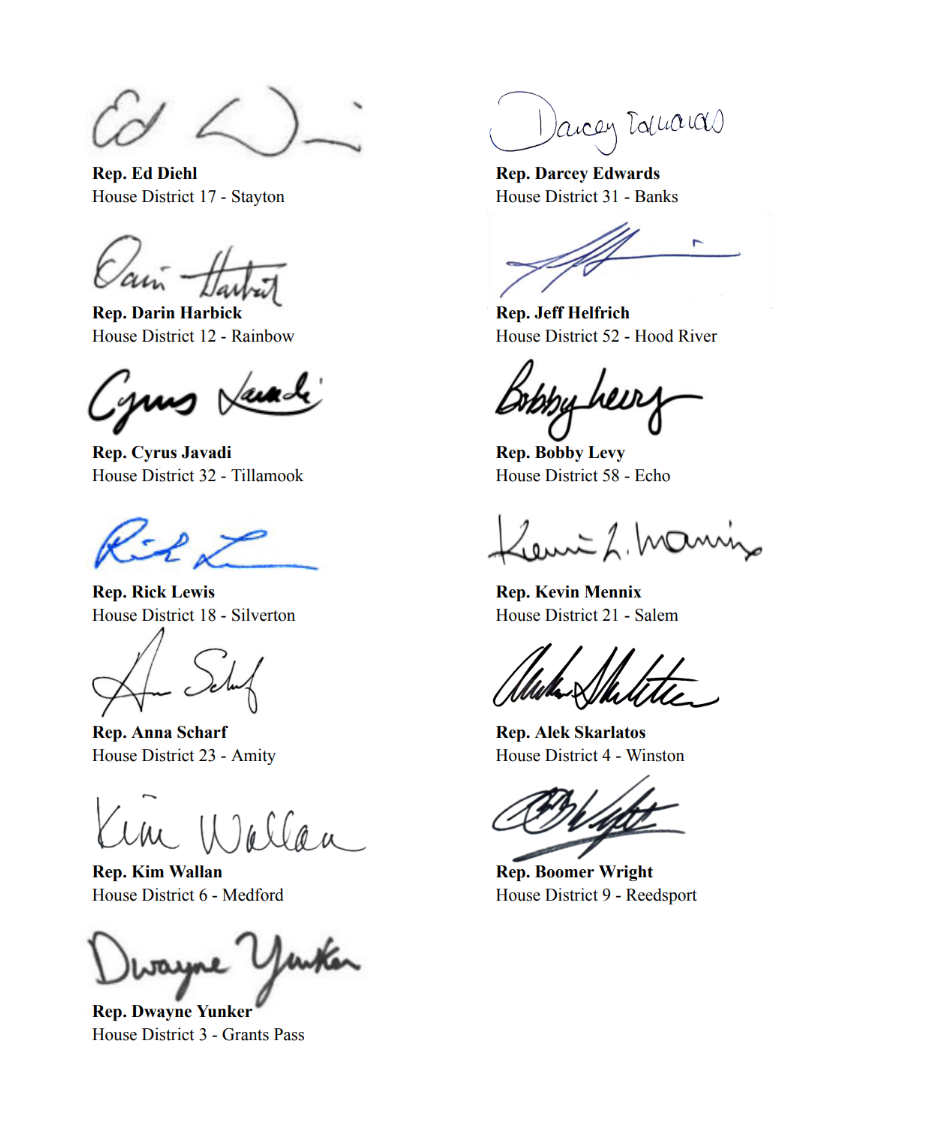 Ed
Darcey Edwards
Rep. Ed Diehl
Rep. Darcey Edwards
House District 17 - Stayton
House District 31 - Banks
Darin Harbick
Rep. Darin Harbick
Rep. Jeff Helfrich
House District 12 - Rainbow
House District 52 - Hood River
Cyrus Javadi
Bobby Levy
Rep. Cyrus Javadi
Rep. Bobby Levy
House District 32 - Tillamook
House District 58 - Echo
Rick
Kevin L. Mannix
Rep. Rick Lewis
Rep. Kevin Mennix
House District 18 - Silverton
House District 21 - Salem
Rep. Anna Scharf
Rep. Alek Skarlatos
House District 23 - Amity
House District 4 - Winston
Kim Wallan
Rep. Kim Wallan
Rep. Boomer Wright
House District 6 - Medford
House District 9 - Reedsport
Dwayne Yunker
Rep. Dwayne Yunker
House District 3 - Grants Pass